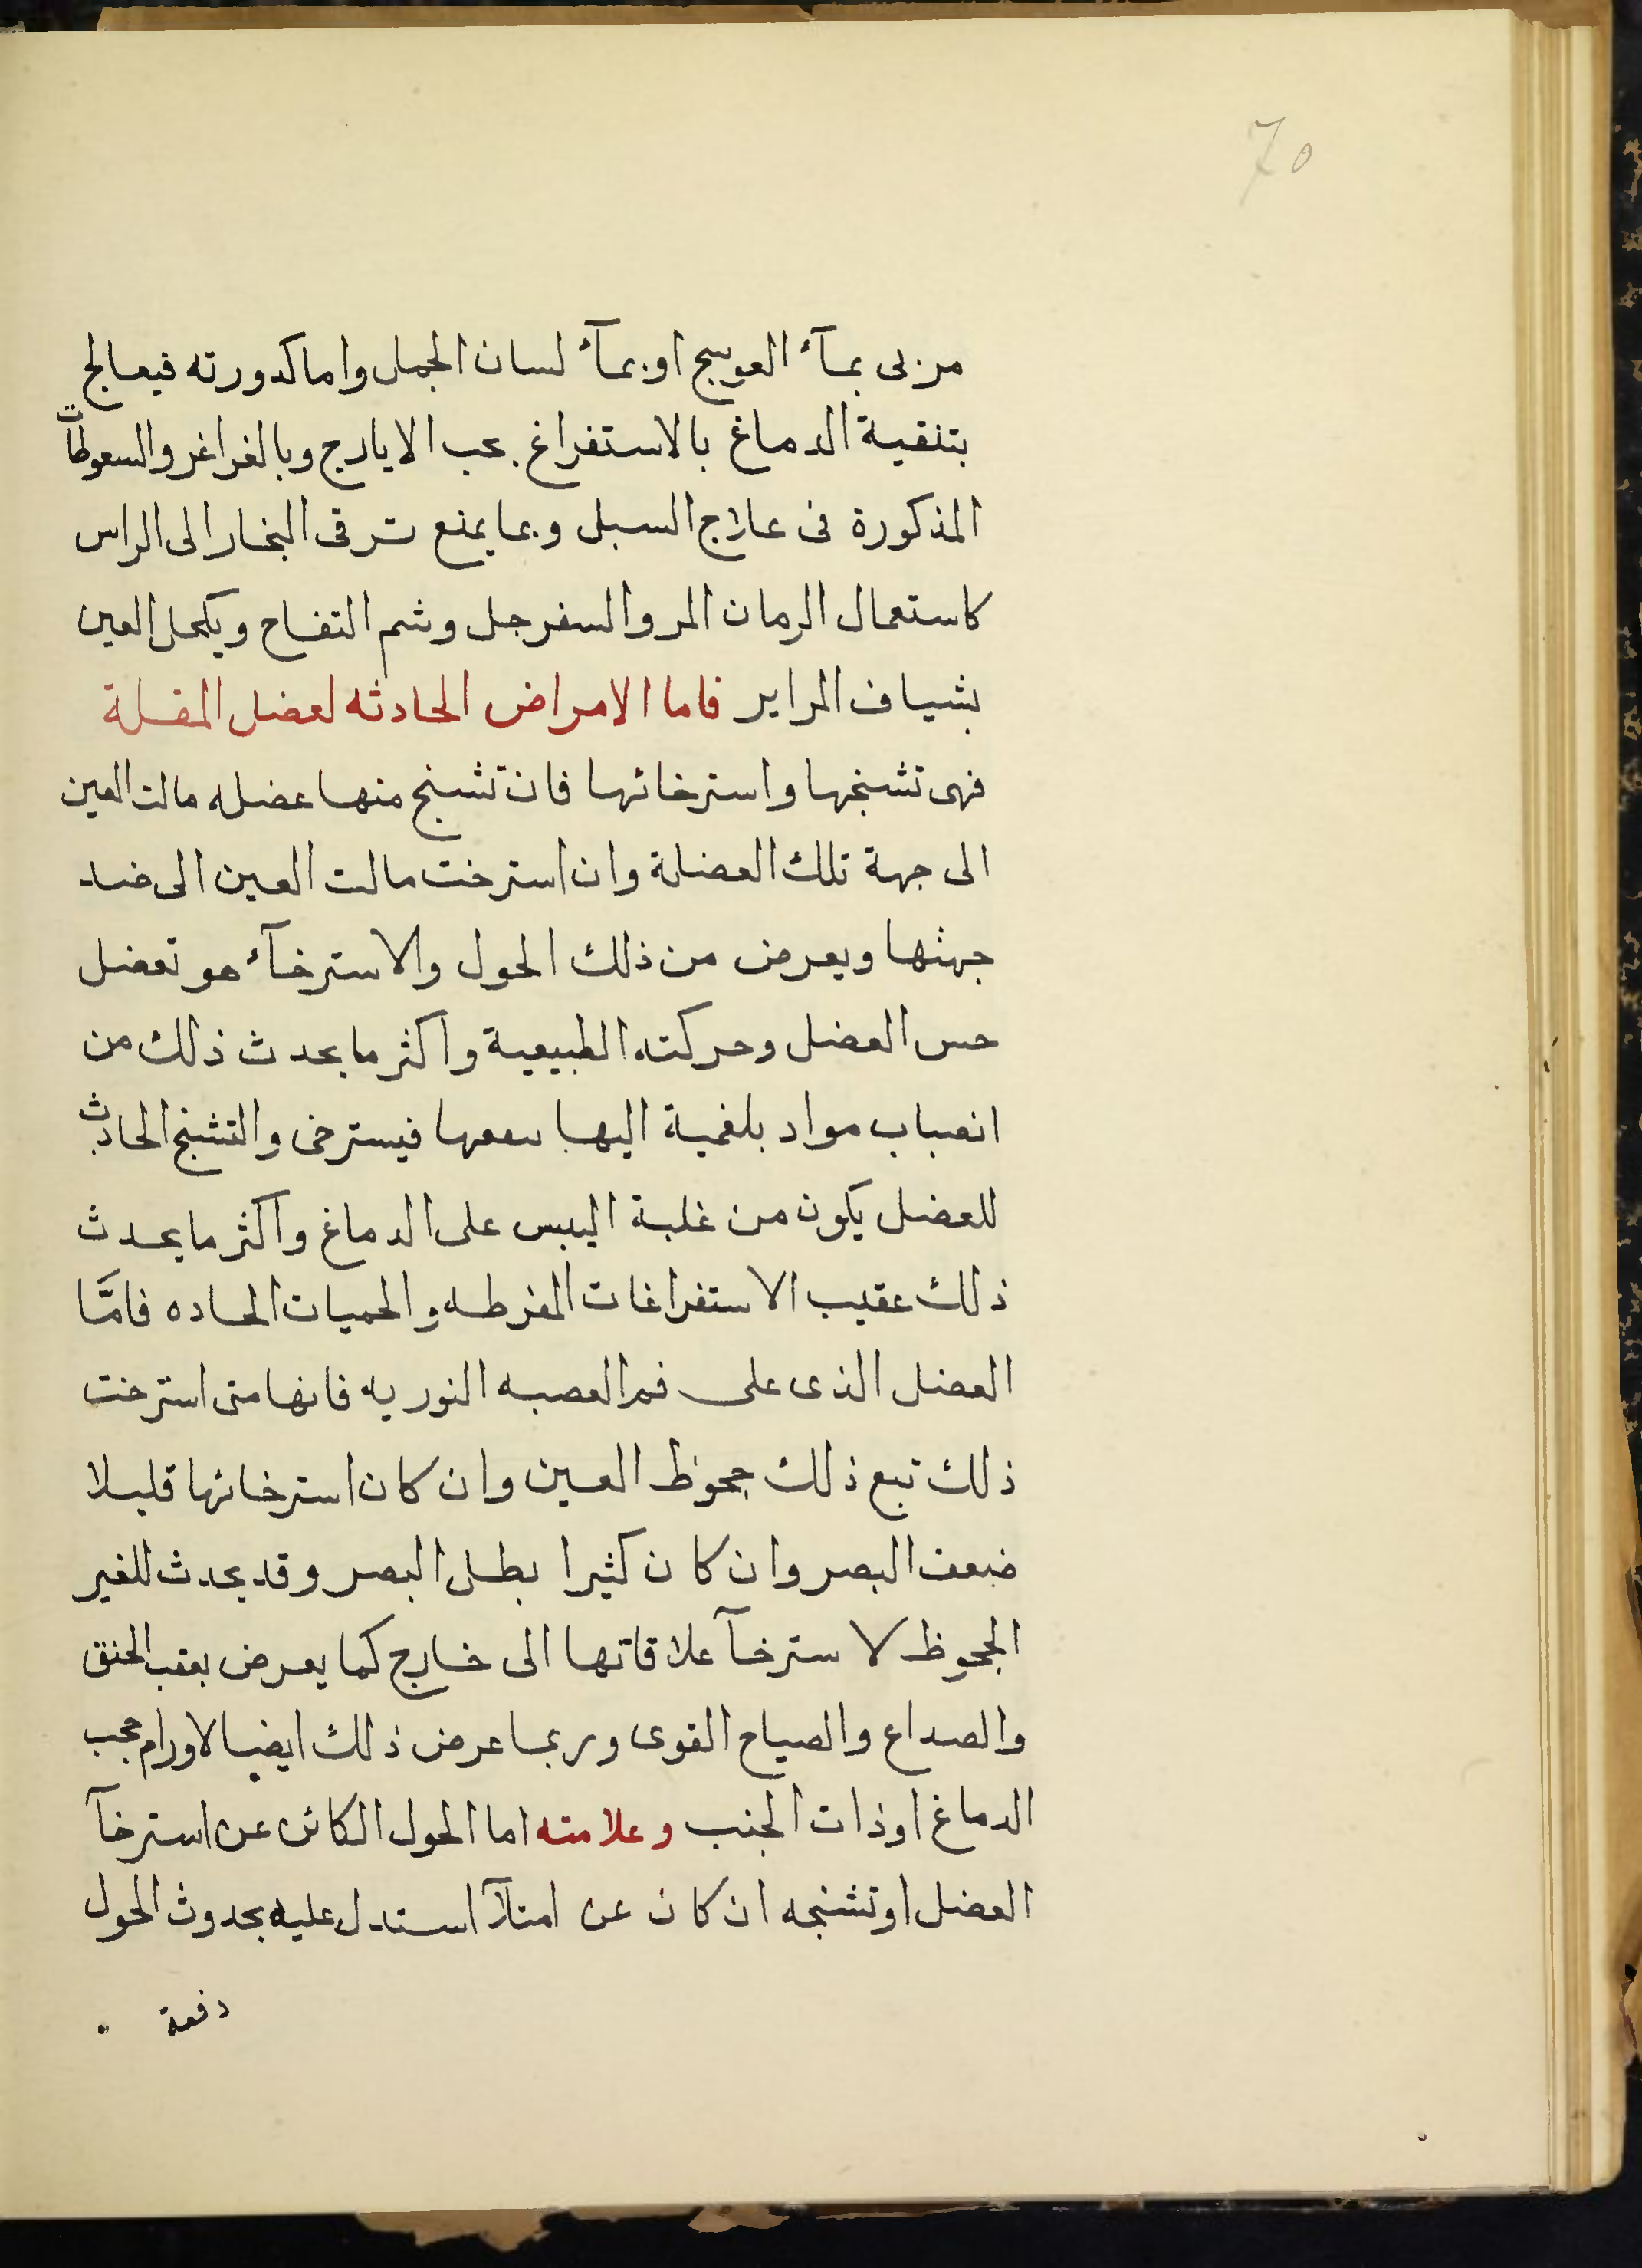 70
مربى بمآء العوسج او بمآء لسان الجمل واما كدورته فيعالج
بتنقية الدماغ بالاستفراغ بحب الايارج وبالغراغر والسعوطات
المذكورة فى علاج السبل وبما يمنع ترقى البخار الى الراس
كاستعمال الرمان المر والسفرجل وشم التفاح ويكحل العين
بشياف المراير فاما الامراض الحادثه لعضل المقلة
فهى تشنجها واسترخائها فان تشنج منها عضله مالت العين
الى جهة تلك العضلة وان استرخت مالت العين الى ضد
جهتها ويعرض من ذلك الحول والاسترخآء هو تعضل
حس العضل وحركته الطبيعية واكثر ما يحدث ذلك من
انصباب مواد بلغمية اليها فيسترخى والتشنج الحادث
للعضل يكون من غلبة اليبس على الدماغ واكثر ما يحدث
ذلك عقيب الاستفراغات المفرطه والحميات الحاده فامَّا
العضل الذى على فم العصبه النوريه فانها متى استرخت
ذلك تبع ذلك جحوظ العين وان كان استرخائها قليلا
ضعف البصر وان كان كثيرا بطل البصر وقد يحدث للغير
الجحوظ لاسترخآ علاقاتها الى خارج كما يعرض بعقب الخنق
والصداع والصياح القوى وربما عرض ذلك ايضا لاورام حجب
الدماغ او ذات الجنب وعلامته اما الحول الكائن عن استرخآ
العضل او تشنجه ان كان عن امتلآ استدل عليه بحدوث الحول
دفعة